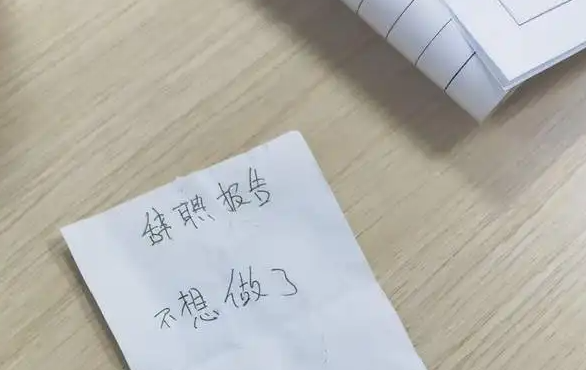 辞职报告
不想做了